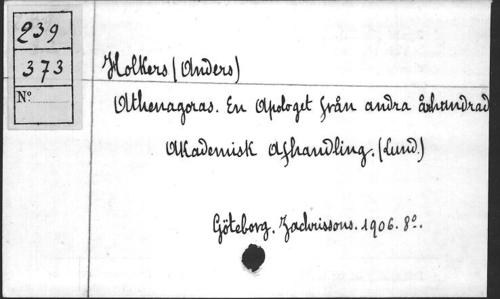 239
373
Nº
Holkers (Anders)
Athenagoras. En Apologet från andra århundrad
Akademisk Afhandling. (Lund.)
Göteborg. Zachrissons. 1906. 8º.